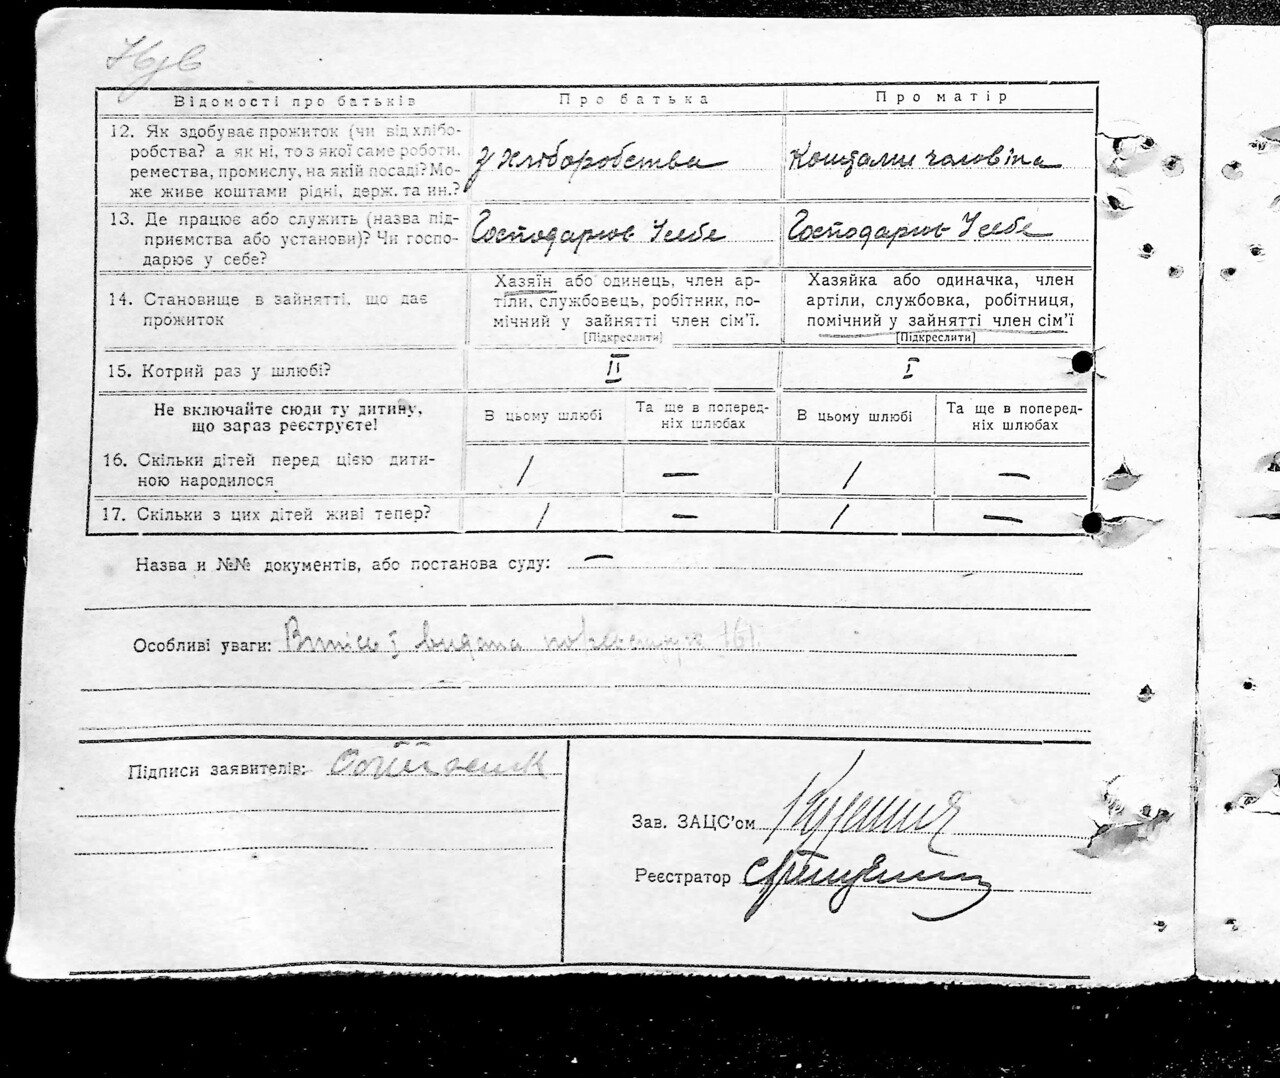 Відомості про батьків Про батька Про матір
12. Як здобуває прожиток (чи від хлібо-
робства? а як ні, то з якої саме роботи,
ремества, промислу, на якій посаді? Мо-
же живе коштами рідні, держ. та ин.?
З хліборобства Коштами чоловіка
13. Де працює або служить (назва під-
приємства або установи)? Чи госпо-
дарює у себе?
Господарює У себе Господарює У себе
14. Становище в зайнятті, що дає
прожиток
Хазяїн або одинець, член ар-
тіли, службовець, робітник, по-
мічний у зайнятті член сім'ї.
[Підкреслити]
Хазяйка або одиначка, член
артіли, службовка, робітниця,
помічний у зайнятті член сім'ї
[Підкреслити]
15. Котрий раз у шлюбі? II I
Не включайте сюди ту дитину,
що зараз реєструєте!
В цьому шлюбі
Та ще в поперед-
ніх шлюбах
В цьому шлюбі
Та ще в поперед-
ніх шлюбах
16. Скільки дітей перед цією дити-
ною народилося
1 — 1 —
17. Скільки з цих дітей живі тепер? 1 — 1 —
Назва и №№ документів, або постанова суду: —
Особливі уваги: видана
Підписи заявителів:
Зав. ЗАЦС'ом
Реєстратор